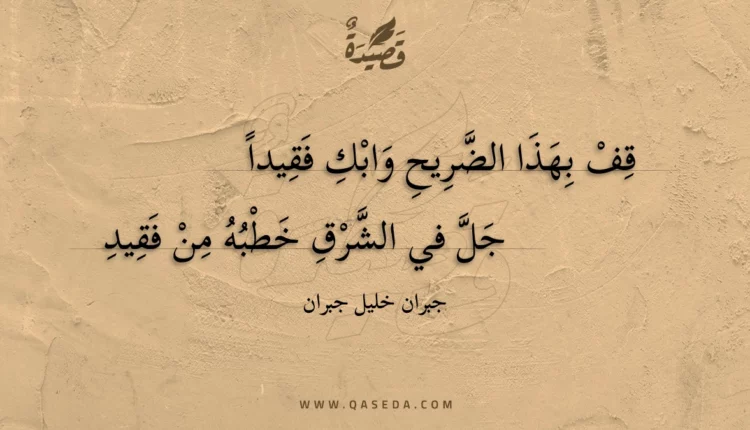 قَصِيدَةٌ
قِفْ بِهَذَا الضَّرِيحِ وَابْكِ فَقِيداً
جَلَّ في الشَّرْقِ خَطْبُهُ مِنْ فَقِيدِ
جبران خليل جبران
WWW.QASEDA.COM